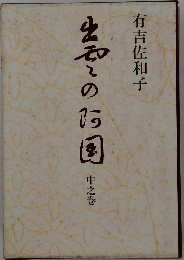 有吉佐和子
出雲の阿国
中之巻